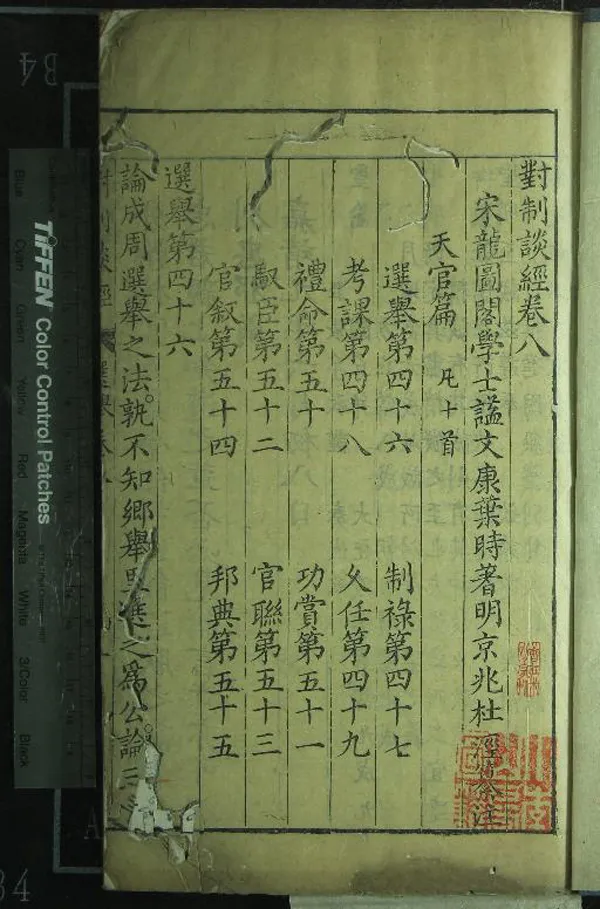 對制談經卷八
宋龍圖閣學士謚文康葉時著明京兆杜
天官篇 凡十首
選舉第四十六 制祿第四十七
考課第四十八 久任第四十九
禮命第五十 功賞第五十一
馭臣第五十二 官聯第五十三
官敘第五十四 邦典第五十五
選舉第四十六
論成周選舉之法孰不知鄉舉里選之爲公論
TIFFEN Color Control Patches
Blue Cyan Green Yellow Red Magenta White 3/Color Black
B4